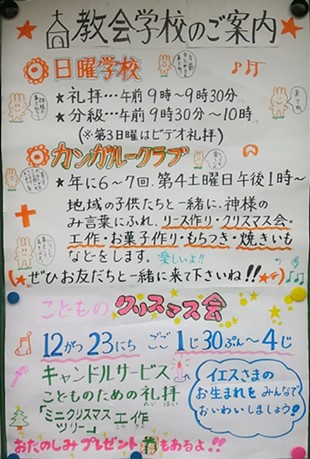 ★教会学校のご案内★
日曜学校
★礼拝…午前9時～9時30分
★分級…午前9時30分～10時
(※第3日曜はビデオ礼拝)
カンガルークラブ
★年に6～7回.第4土曜日午後1時～
地域の子供たちと一緒に、神様の
み言葉にふれ、リース作り・クリスマス会・
工作・お菓子作り・もちつき・焼きいも
などをします。楽しいよ!!
(★ぜひお友だちと一緒に来て下さいね!!★)
こどものクリスマス会
12がつ23にち ごご1じ30ぷん～4じ
キャンドルサービス
こどものための礼拝
「ミニクリスマスツリー」工作
イエスさまの
お生まれをみんなで
おいわいしましょう♪
おたのしみプレゼントもあるよ!!